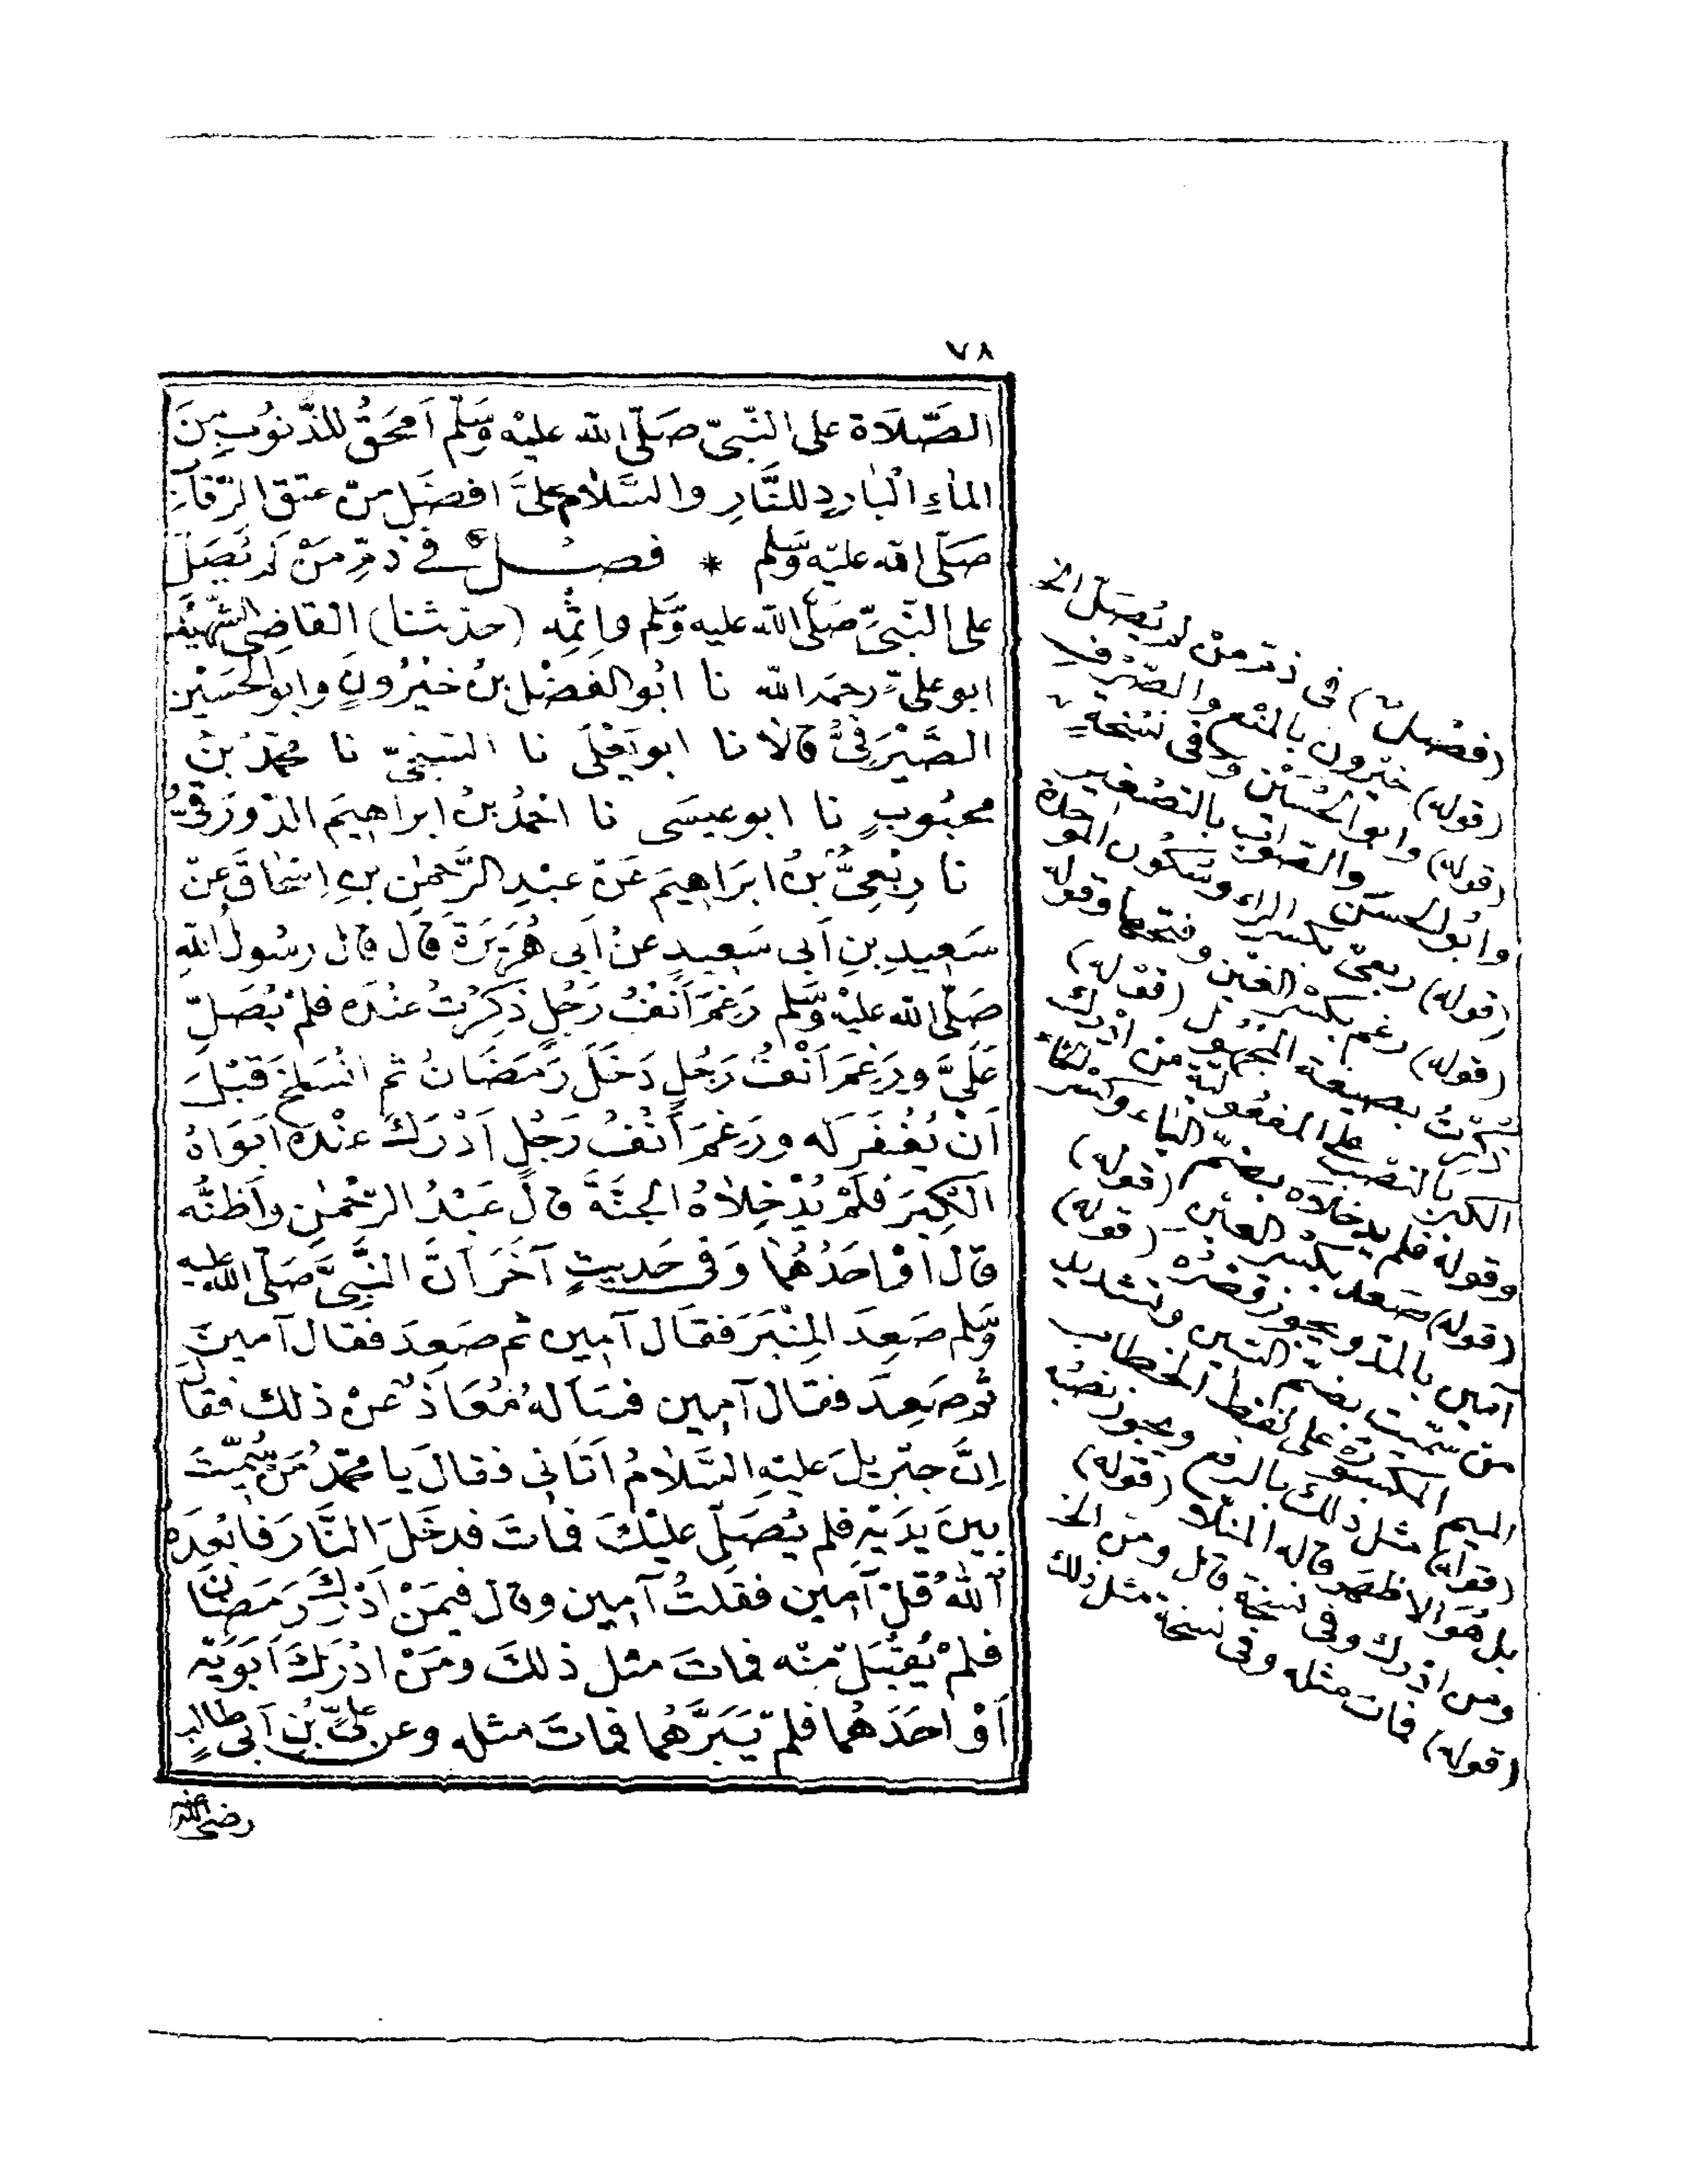 ٧٨
الصَّلَاة على النَّبىّ صَلَّى الله عليْه وَسَلَّم اَمحَقُ للذُّنوُب مِنَ
الماءِ الْبَارِدِ للنَّارِ والسَّلامُ علىَّ افضَل منْ عتق الرِّقابِ
صَلَّى الله عليْه وَسَلَّم * فصْلٌ فى ذمّ مَنْ لم يُصَلِّ
على النَّبىّ صَلَّى الله عليه وَسَلَّم واِثْمِه (حدّثنا) القاضِى الشَّهِيدُ
ابو علىّ رحمَه الله نا ابُو الفَضْل بنُ خَيْرُونٍ وابو الحُسَيْن
الصَّيْرَفىُّ قالَا نا ابو يَعْلَى نا السِّنجىّ نا محمّدُ بنُ
محبُوبٍ نا ابو عيسَى نا احْمدُ بنُ ابراهيمَ الدَّوْرَقىُّ
نا رِبْعِىُّ بْنُ ابرَاهيمَ عَنْ عبْدِ الرَّحمٰن بنِ اِسْحَاقَ عنْ
سَعِيدِ بنِ اَبى سَعِيدٍ عنْ اَبى هُرَيْرَةَ قَالَ قال رسُولُ اللهِ
صَلَّى الله عليْه وَسَلَّم رَغِمَ اَنْفُ رَجُلٍ ذُكِرْتُ عنْدَه فلمْ يُصَلِّ
عَلَىَّ ورَغِمَ اَنْفُ رَجُلٍ دَخَلَ رَمَضَانُ ثم انْسَلخَ قبْلَ
اَنْ يُغْفَرَ له ورَغِمَ اَنْفُ رَجُلٍ اَدْرَكَ عنْدَه اَبَوَاهُ
الْكِبَرَ فلَمْ يُدْخِلاَهُ الجنَّةَ قالَ عَبْدُ الرّحْمٰنِ واَظنُّه
قال اوْ احَدُهُما وَفى حَديثٍ آخَرَ اَنَّ النَّبىَّ صَلَّى الله عليه
وسَلَّم صَعِدَ المِنْبَرَ فقَال آمِين ثم صَعِدَ فقال آمينَ
ثم صَعِدَ فقال آمِين فسَاَلهُ مُعَاذٌ عنْ ذلك فقال
اِنَّ جبْريلَ عليْهِ السَّلامُ اَتَانى فقالَ يا محمّدُ مَنْ سُمِّيتَ
بينَ يدَيْهِ فلم يُصَلِّ عليْكَ فماتَ فدخَلَ النَّارَ فابْعَدَه
اَللهُ قلْ آمِين فقلْتُ آمِين وقال فيمَنْ اَدْرَكَ رَمَضَانَ
فلمْ يُقْبَلْ منْه فماتَ مثل ذلكَ ومَنْ ادْرَكَ اَبَوَيْه
اَوْ احَدَهُما فلمْ يَبَرَّهُما فماتَ مثله وعن علىِّ بْنِ اَبى طالبٍ
رضى الله عنه
(فصْلٌ) فى ذمّ منْ لم يُصَلّ الخ
(قوله) خيْرون بالمنْع والصّرْف
(قوله) وابو الحُسَيْن وفى نسْخةٍ
وابُو الحسَن والصّوَاب بالتّصْغير
(قوله) ربعىّ بكسْر الراء وسُكون الموحّدة
(قوله) رغم بكسْر الغيْن وفتحها وقوله
ذُكِرْتُ بصيغة المجهول (قوْله)
الكبر بالنصْب على المفعوليّة من ادْرك
وقوله فلم يدخلاه بضمّ الياء وكسْر الخاء
(قوله) صَعد بكسْر العيْن (قوله)
آمين بالمدّ ويجوز قصْرُه (قوله)
من سمّيت بضمّ السّين وتشديد
الميم المكسُورة على لفظ الخطاب
(قوله) مثل ذلك بالرفع ويجوز نصْبُه
بل هُوَ الاظهَر قاله المنلا (قوله)
ومن ادْرك وفى نسخة قال ومن الخ
(قوله) فماتَ مثله وفى نسخة مثل ذلك